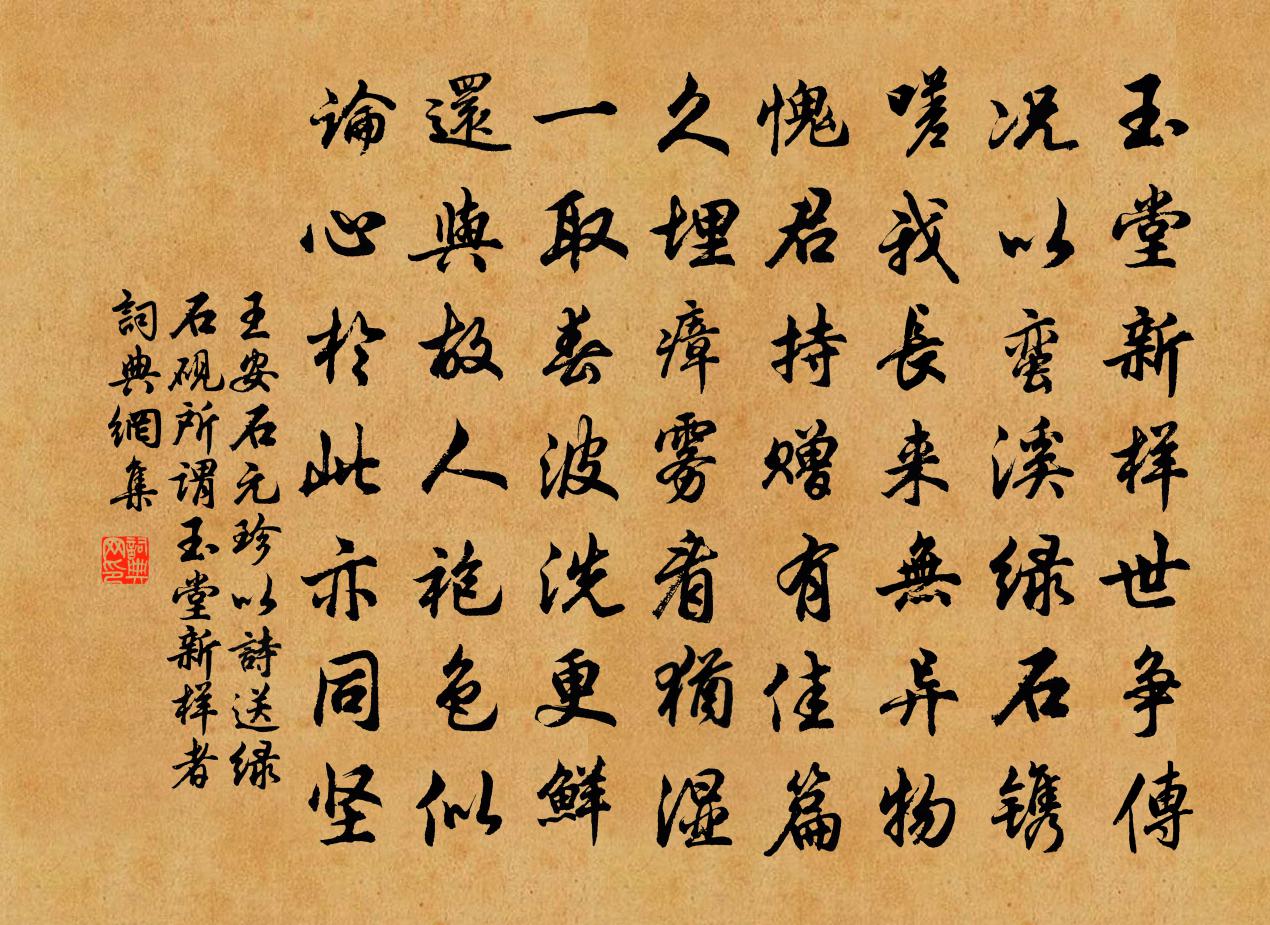 玉堂新样世争傳
况以蛮溪绿石镌
嗟我長来無异物
愧君持赠有佳篇
久埋瘴雾看猶湿
一取春波洗更鮮
還與故人袍色似
論心於此亦同坚
王安石元珍以詩送绿
石砚所谓玉堂新样者
詞典網集
詞典网印